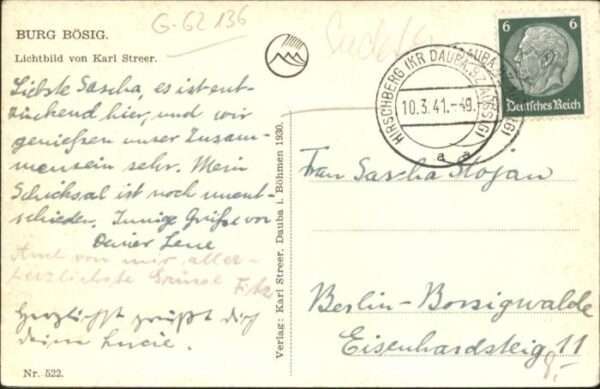 BURG BÖSIG.
Lichtbild von Karl Streer.
G-62 136
Sudeten
Liebste Sascha, es ist ent-
zückend hier, und wir
genießen unser Zusam-
mensein sehr. Mein
Schicksal ist noch unent-
schieden. Innige Grüße von
Deiner Lene
Auch von mir aller-
herzlichste Grüsse Fitz
Herzlichst grüßt dich
deine Lucie.
Nr. 522.
Verlag: Karl Streer, Dauba i. Böhmen 1930.
6 6
Deutsches Reich
HIRSCHBERG (KR DAUBA)
10.3.41.-
a a
Frau Sascha Stojan
Berlin-Borsigwalde
Eisenhardsteig 11